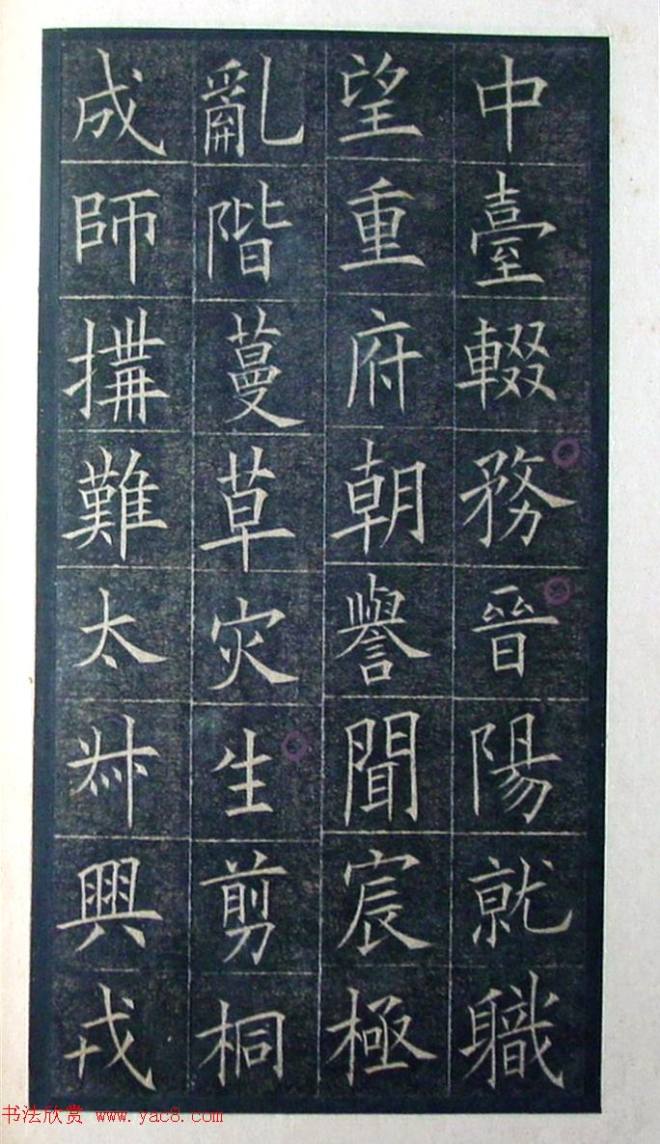 中臺輟務晉陽就職
望重府朝譽聞宸極
亂階蔓草灾生剪桐
成師搆難太叔興戎
书法欣赏 www.yac8.com